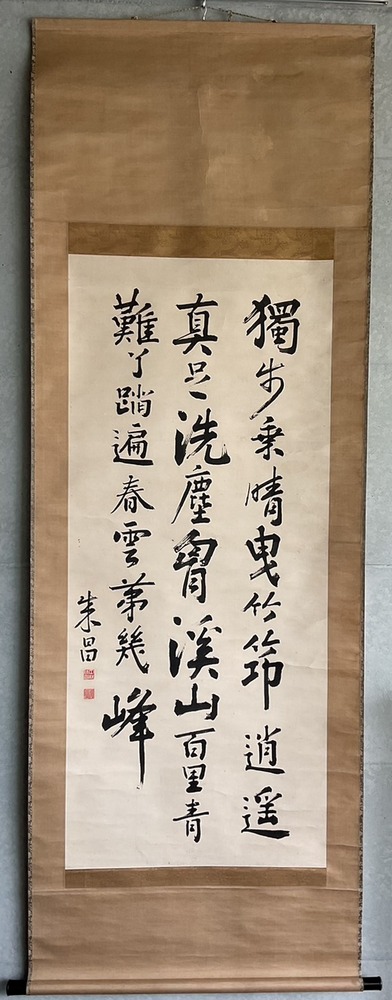 獨步乗晴曳竹笻逍遥
真足洗塵胷溪山百里青
難了踏遍春雲苐幾峰
朱昌